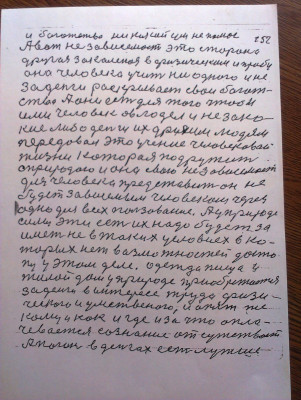 152
и богатство никакой ум не помог
А вот не зависемость это сторона
другая закаленая в физическом и в труду
она человека учит ни одного и не
За деньги раскривает свои богатст
ства А они есть для того чтоб
ими человек овладел и не за ка
кие либо деньги их другим людям
передовал Это учение человеческой
жизни которая подружит
с природою и она свою не зависемость
для человека представит он не
будет зависемым человеком через
одно для всех ползование. А у природе
силы эти есть их надо будет за
иметь не в таких условиех в ко
торых нет возможностей досто
пу у этом деле. Одежда пища и
жилой дом у природе приобретается
за деньги в интересе труда физи
ческого и умственого, и опять же
кому и как и где и за что опла
чевается сознание от существает
А погон в деньгах есть лутше